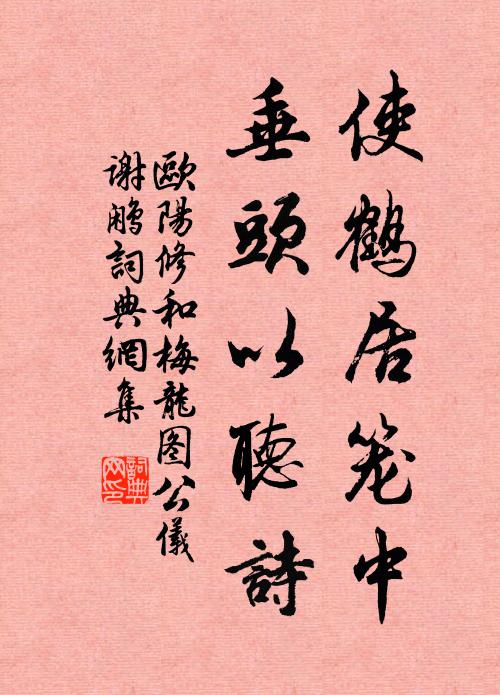 使鶴居笼中
垂頭以聽詩
歐陽修和梅龍图公儀
谢鹏詞典網集
詞典
网印